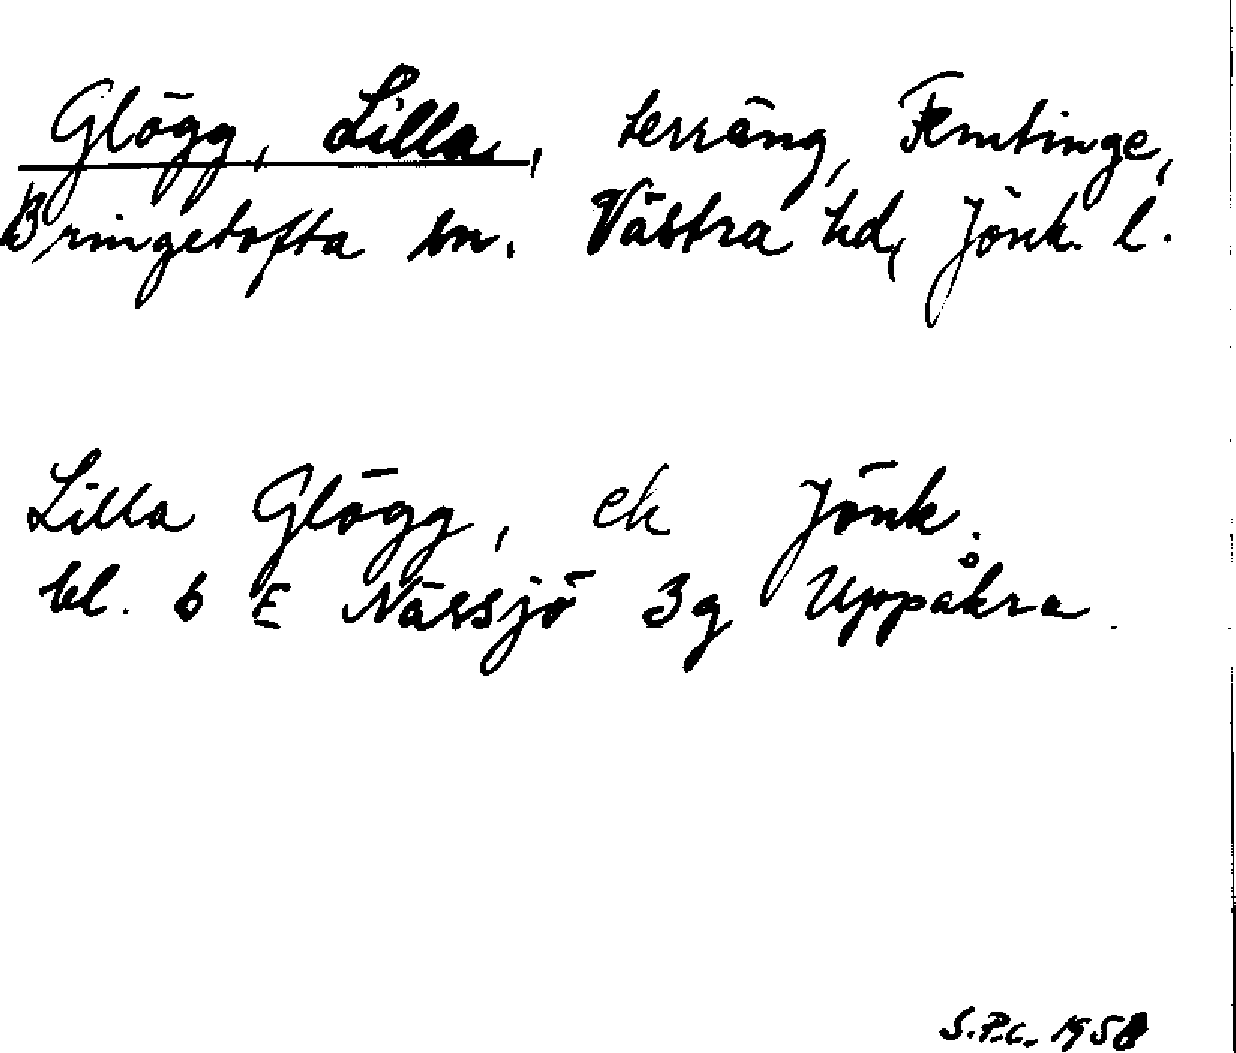 Glögg, Lilla, terräng, Femtinge,
Bringetofta sn. Västra hd, Jönk. l.
Lilla Glögg, ek Jönk.
bl. 6 E Nässjö 3g Uppåkra.
S.P.C. 1958